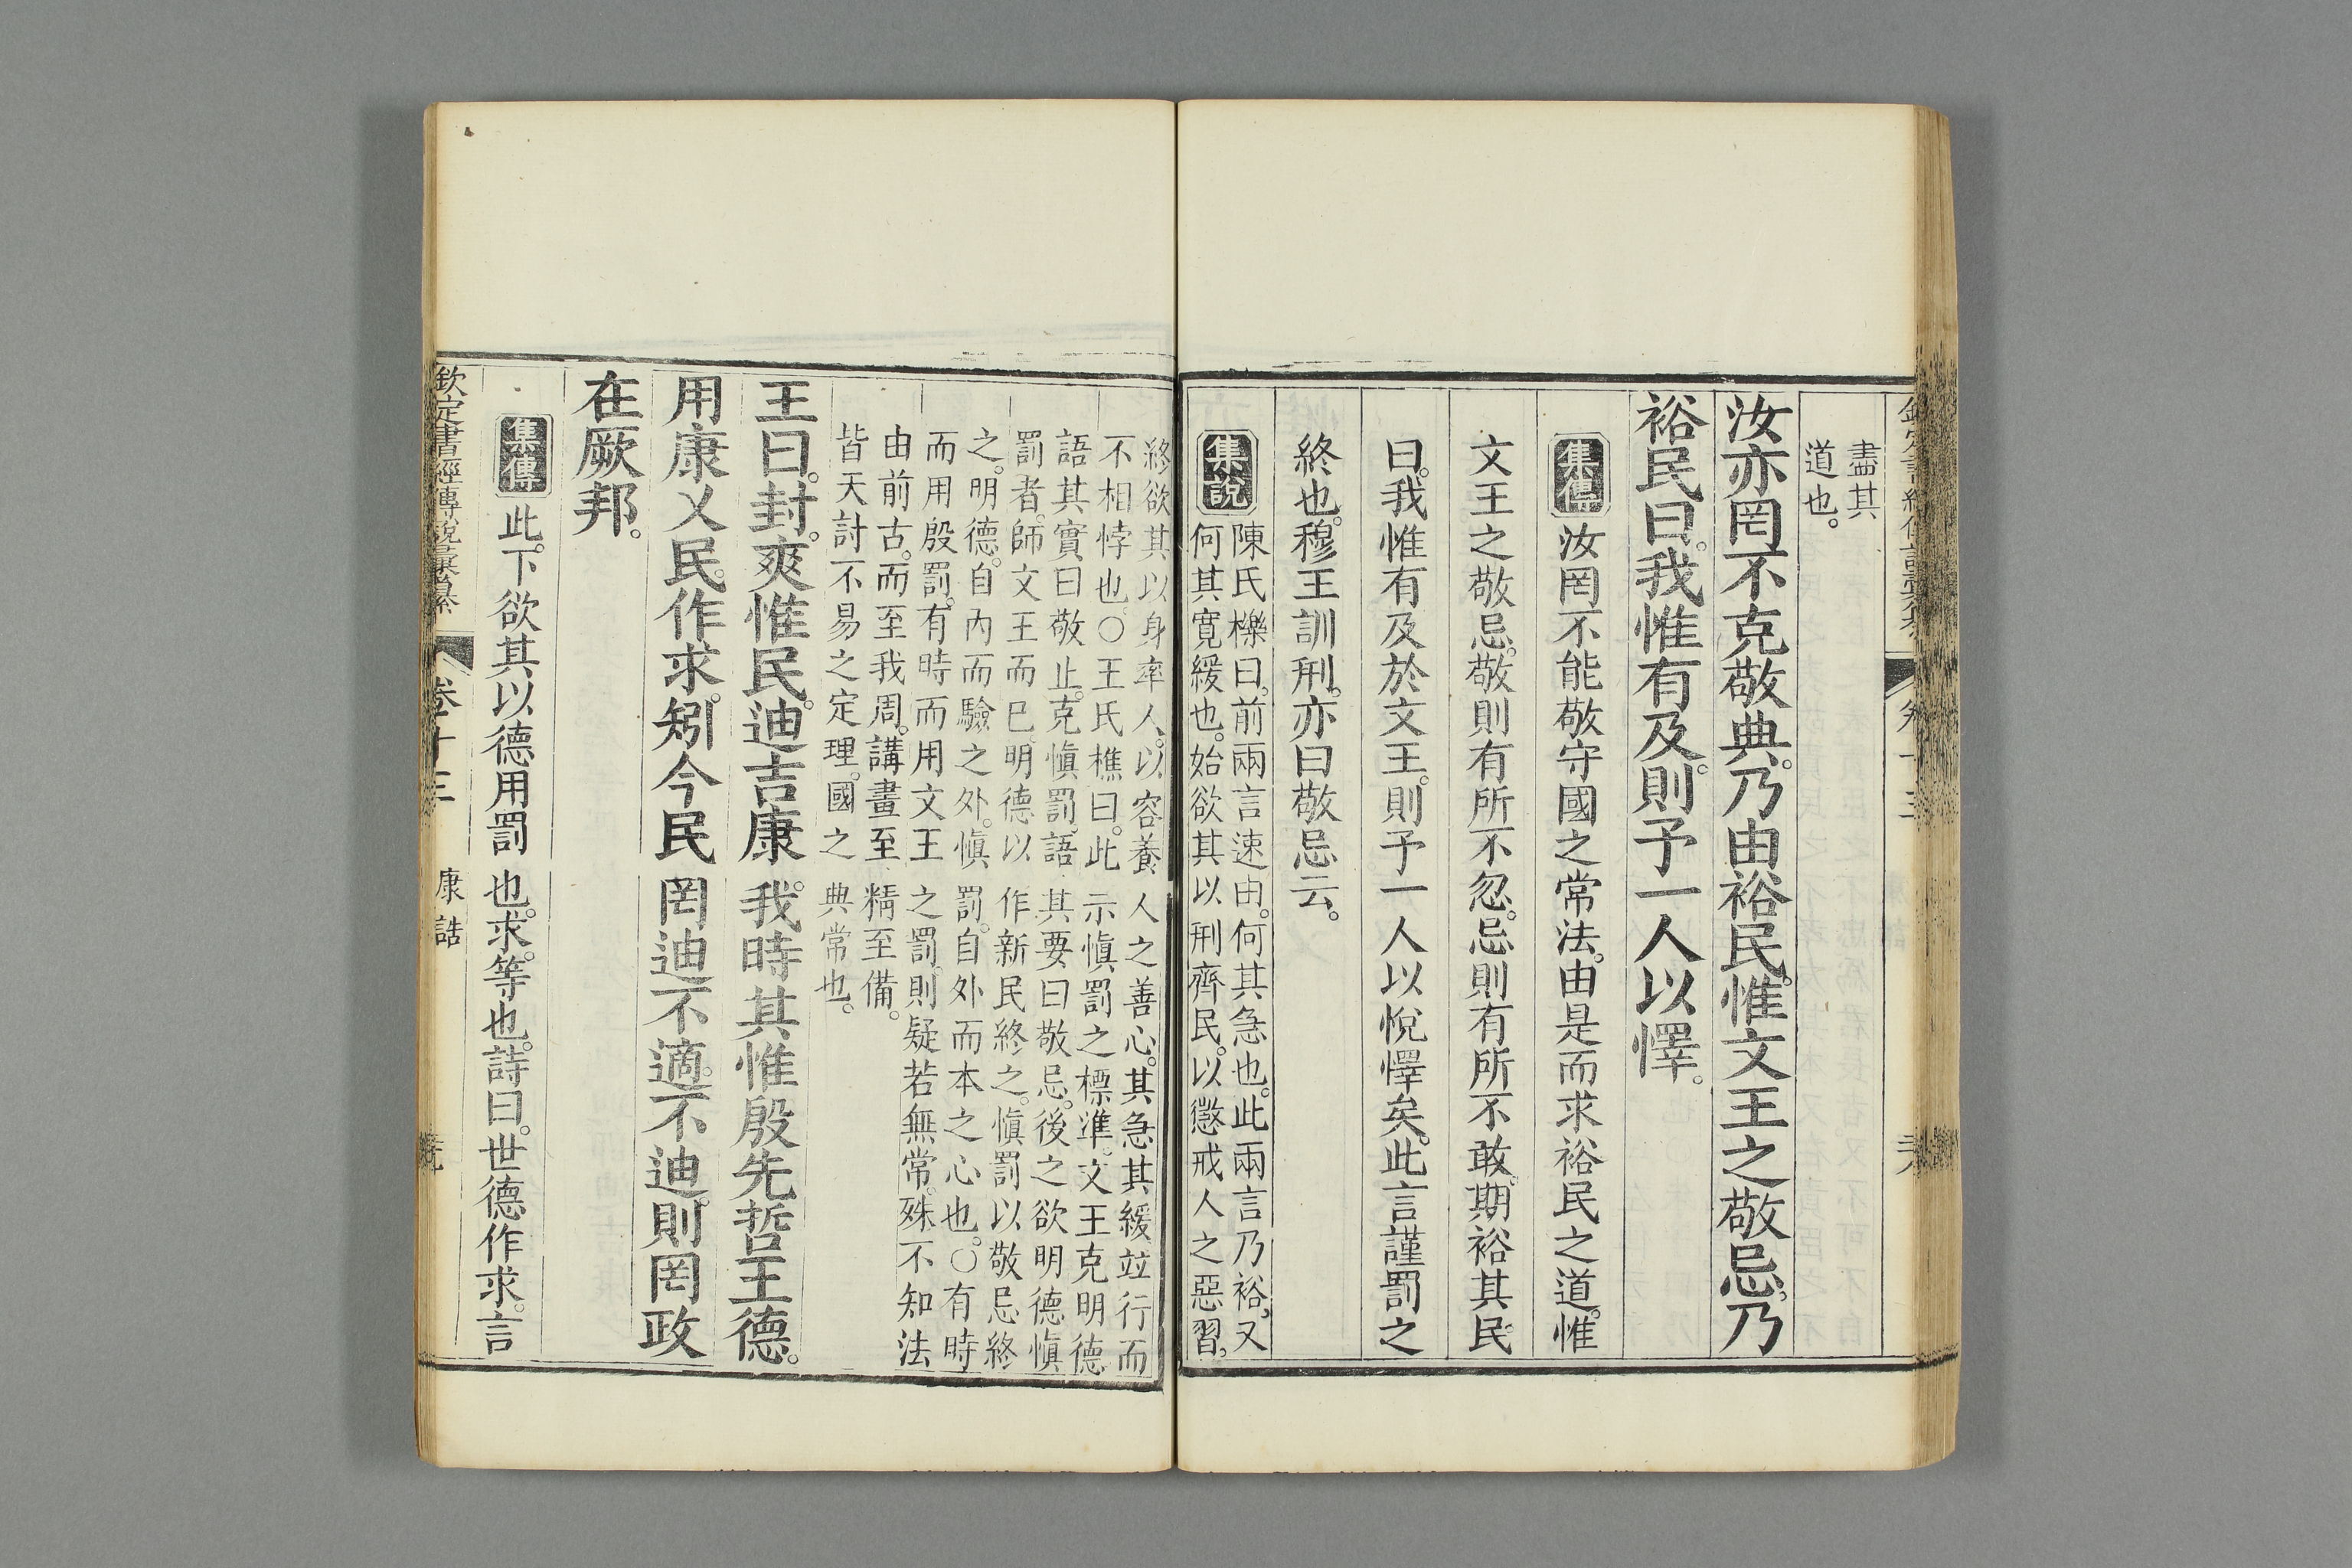 盡其
道也。
汝亦罔不克敬典。乃由裕民。惟文王之敬忌。乃
裕民曰。我惟有及。則予一人以懌。
集傳 汝罔不能敬守國之常法。由是而求裕民之道。惟
文王之敬忌。敬則有所不忽。忌則有所不敢。期裕其民
曰。我惟有及於文王。則予一人以悅懌矣。此言謹罰之
終也。穆王訓刑。亦曰敬忌云。
集說 陳氏櫟曰。前兩言速由。何其急也。此兩言乃裕。又
何其寬緩也。始欲其以刑齊民。以懲戒人之惡習。
終欲其以身率人。以容養人之善心。其急其緩竝行而
不相悖也。○王氏樵曰。此示愼罰之標準。文王克明德
語其實曰敬止。克愼罰。語其要曰敬忌。後之欲明德愼
罰者。師文王而已。明德以作新民終之。愼罰以敬忌終
之。明德。自內而驗之外。愼罰。自外而本之心也。○有時
而用殷罰。有時而用文王之罰。則疑若無常。殊不知法
由前古。而至我周。講畫至精至備。
皆天討不易之定理。國之典常也。
王曰。封。爽惟民。迪吉康。我時其惟殷先哲王德。
用康乂民。作求。矧今民罔迪不適。不迪。則罔政
在厥邦。
集傳 此下欲其以德用罰也。求。等也。詩曰。世德作求。言
欽定書經傳說彙纂 卷十三 康誥